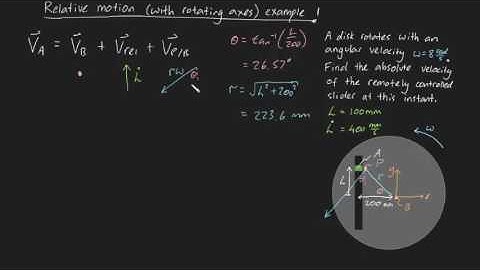 Relative motion (with rotating axes) example 1
V_A = V_B + V_rel + V_P/B
L̇
rω
θ
θ = tan⁻¹(L/200)
= 26.57°
r = √L² + 200²
= 223.6 mm
A disk rotates with an
angular velocity ω = 8 rad/s.
Find the absolute velocity
of the remotely controlled
slider at this instant.
L = 100mm
L̇ = 400 mm/s
ω
A
P
L
r
θ
y
x
B
200 mm